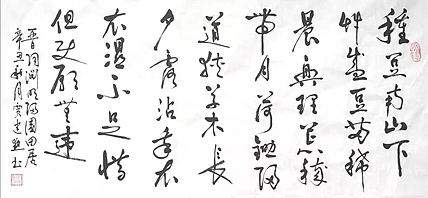 種豆南山下
艸盛豆苗稀
晨興理荒穢
帶月荷鋤歸
道狹草木長
夕露沾我衣
衣湿不足惜
但使願無違
晉陶淵明歸園田居
辛丑秋月書